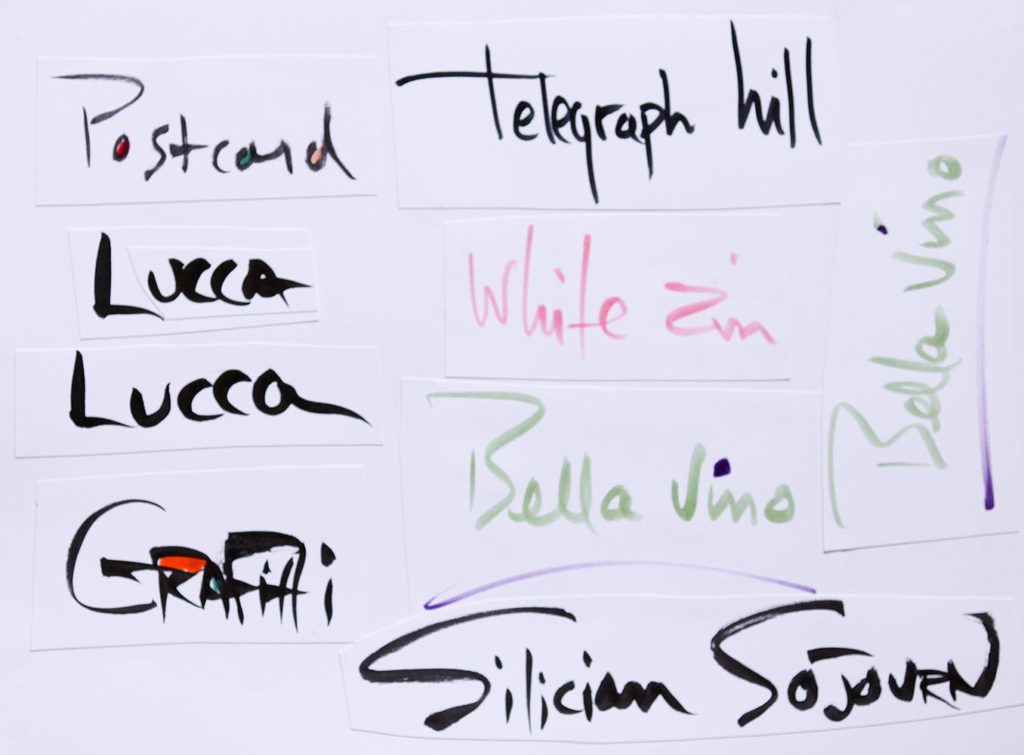 Postcard
Telegraph hill
Lucca
White Zin
Bella Vino
Lucca
Bella Vino
GRAFiTTi
Silician SOJOURN